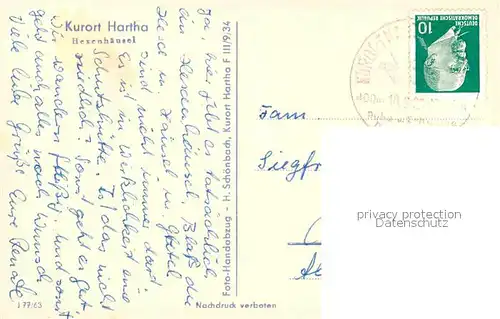 Kurort Hartha
Hexenhäusel
Ja, hier gibt es tatsächlich
ein Hexenhäusel. Bloß die
Hexe u. Hänsel u. Gretel
sind nicht immer dort.
Es ist in Wirklichkeit eine
Schutzhütte. Ist das nicht
niedlich? Sonst geht es gut.
Wir wandern fleißig und sonst
geht auch alles nach Wunsch.
Viele liebe Grüße Eure Renate
J 77/63
Foto-Handabzug - H. Schönbach, Kurort Hartha F III/6/34
Nachdruck verboten
DEUTSCHE
DEMOKRATISCHE REPUBLIK
10
KURORT
400m
Fam
Siegfr
privacy protection
Datenschutz